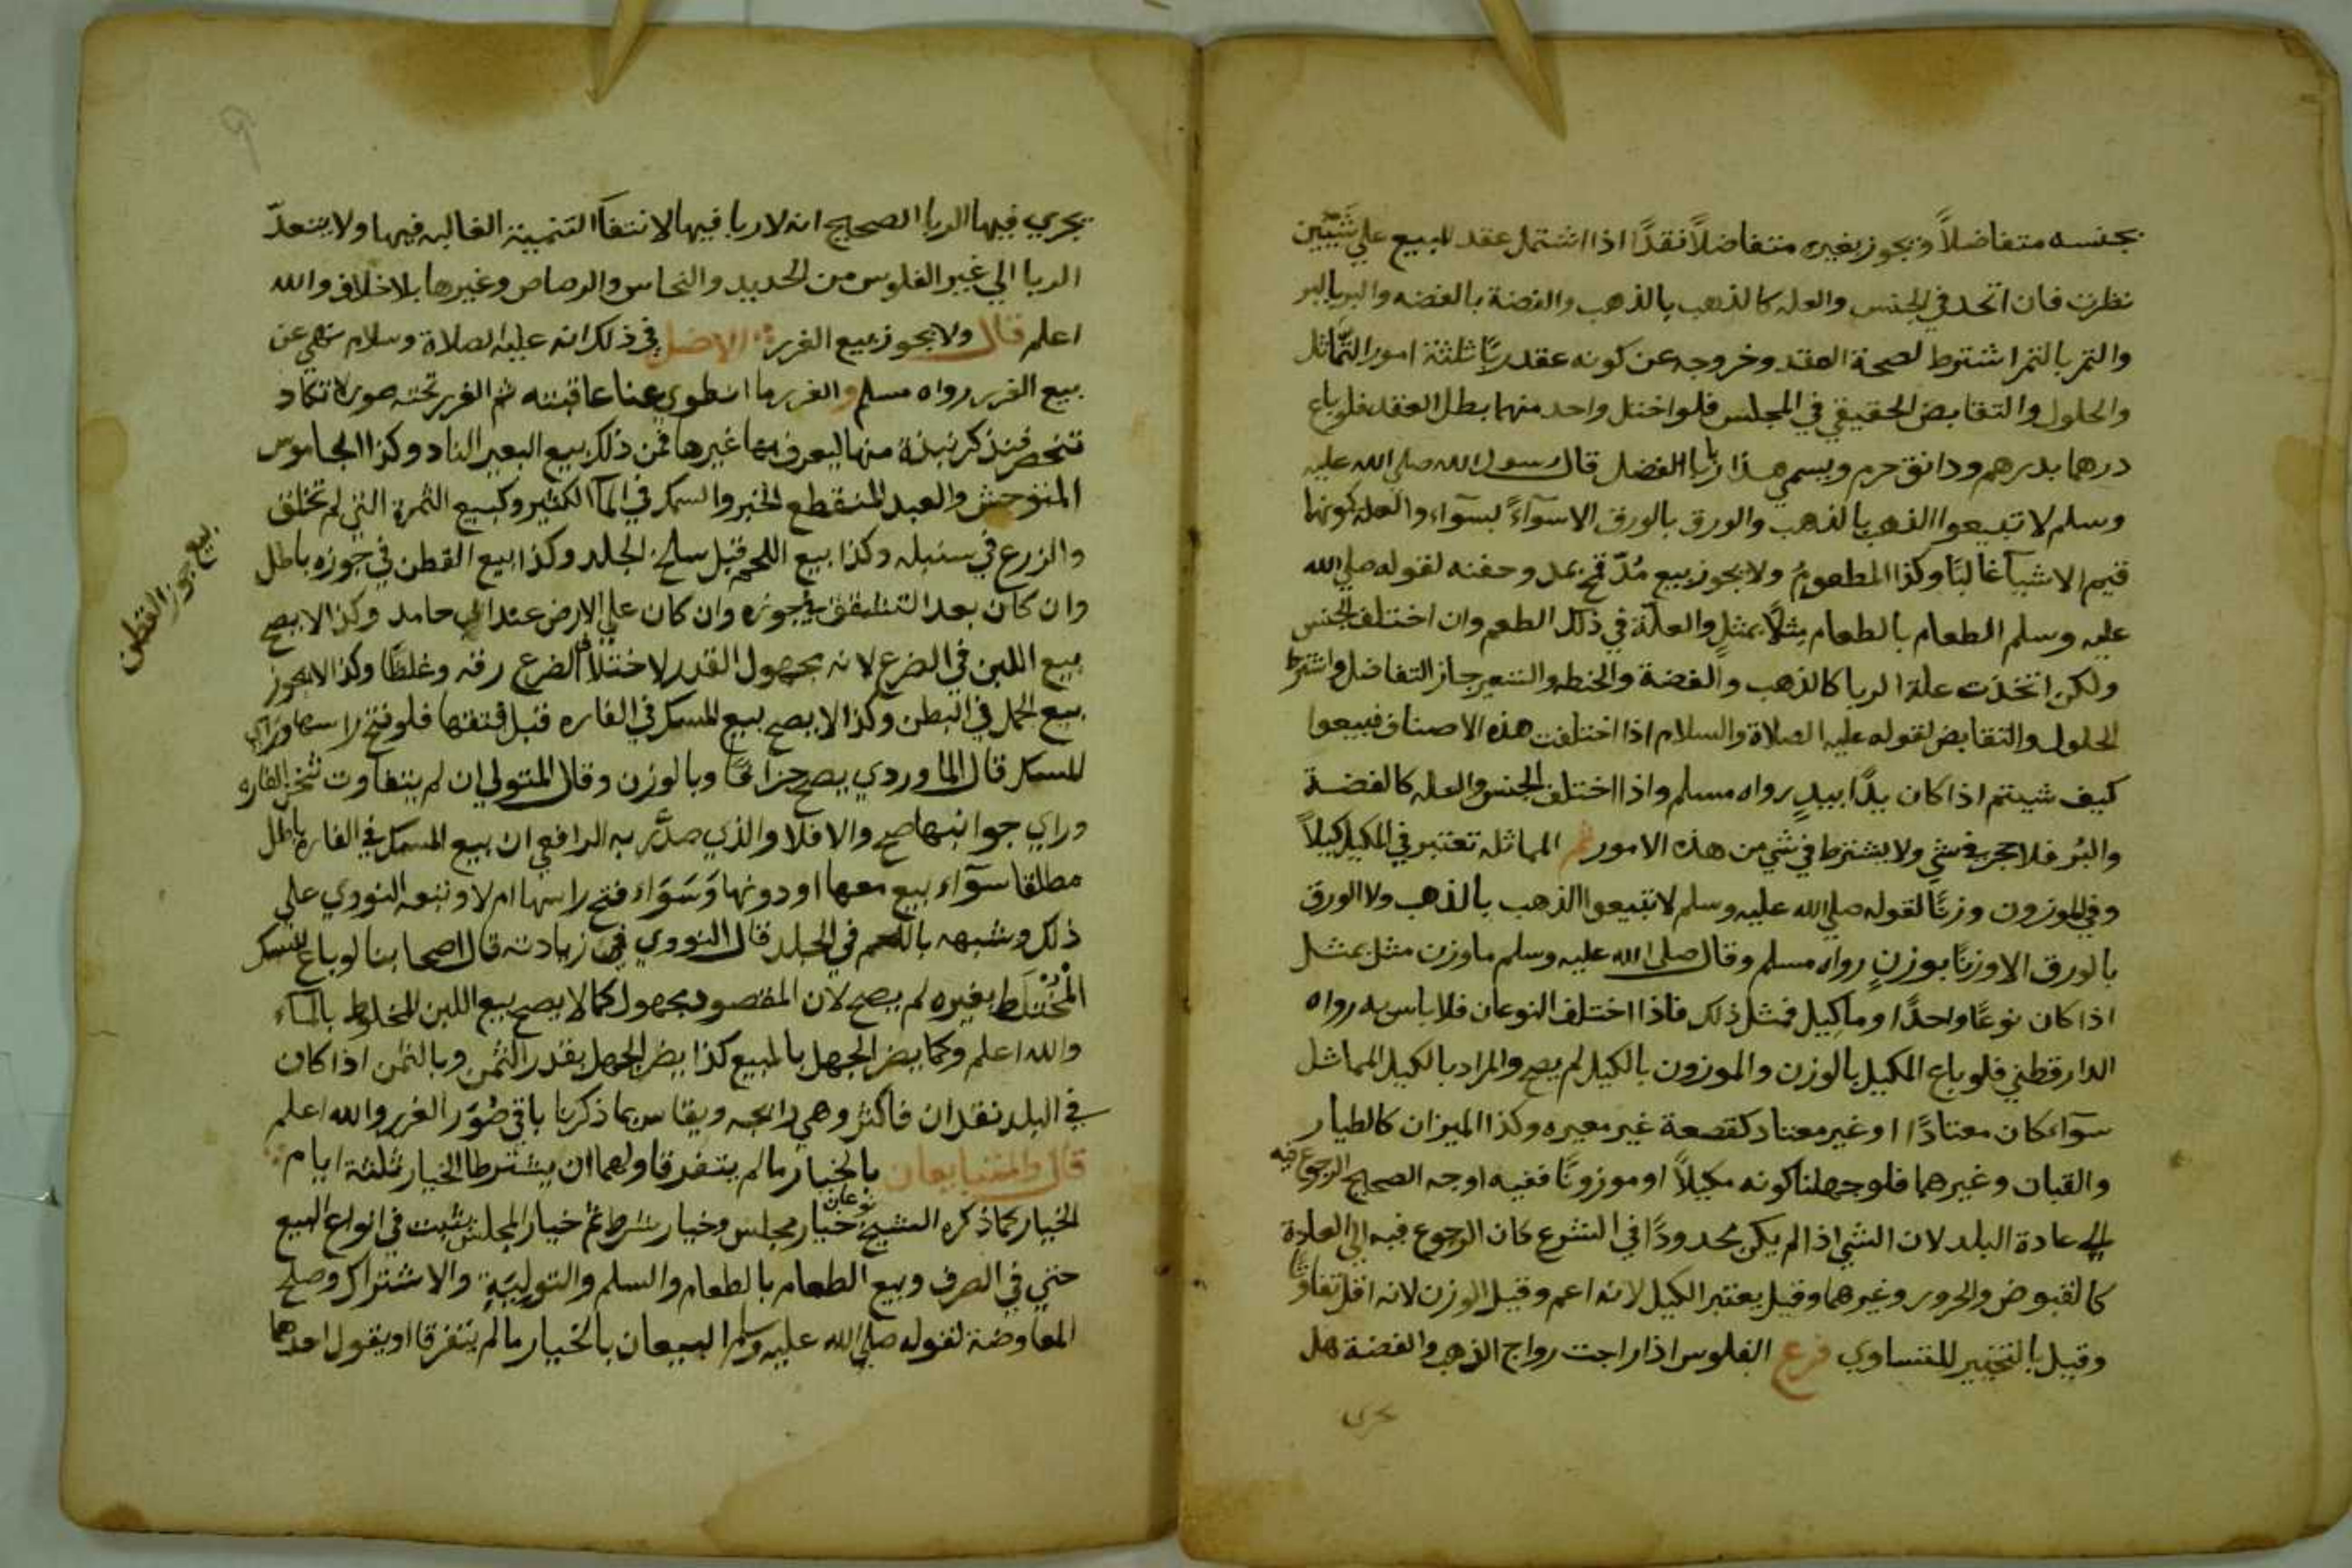 بجنسه متفاضلاً ويجوز بغيره متفاضلاً نقدًا اذا اشتمل عقد البيع على شيئين
نظرت فان اتحد في الجنس والعله كالذهب بالذهب والفضة بالفضه والبر بالبر
والتمر بالتمر اشترط لصحة العقد وخروجه عن كونه عقد ربًا ثلثة امور التماثل
والحلول والتقابض الحقيقي في المجلس فلو اختل واحد منهما بطل العقد فلو باع
درهما بدرهم ودانق حرم ويسمي هذا ربا الفضل قال رسول الله صلى الله عليه
وسلم لا تبيعوا الذهب بالذهب والورق بالورق الا سوآءً بسوآء والعله كونها
قيم الاشيآ غالبًا وكذا المطعوم ولا يجوز بيع مُدّ قمح بمد وحفنه لقوله صلي الله
عليه وسلم الطعام بالطعام مثلاً بمثلٍ والعلّة في ذلك الطعم وان اختلف الجنس
ولكن اتخذت علة الربا كالذهب والفضة والحنطه والشعير جاز التفاضل واشترط
الحلول والتقابض لقوله عليه الصلاة والسلام اذا اختلفت هذه الاصناف فبيعوا
كيف شيتم اذا كان يدًا بيدٍ رواه مسلم واذا اختلف الجنس والعله كالفضة
والبُر فلا حجر في شي ولا يشترط في شي من هذه الامور ثم المماثله تعتبر في المكيل كيلاً
وفي الموزون وزنًا لقوله صلي الله عليه وسلم لا تبيعوا الذهب بالذهب ولا الورق
بالورق الا وزنًا بوزنٍ رواه مسلم وقال صلى الله عليه وسلم ما وزن مثل بمثل
اذا كان نوعًا واحدًا وما كيل فمثل ذلك فاذا اختلف النوعان فلا باس به رواه
الدارقطني فلو باع المكيل بالوزن والموزون بالكيل لم يصح والمراد بالكيل المماثل
سوآء كان معتادًا او غير معتاد كقصعة غير معيره وكذا الميزان كالطيار
والقبان وغيرهما فلو جهلنا كونه مكيلاً او موزونًا ففيه اوجه الصحيح الرجوع فيه
الي عادة البلد لان الشي اذا لم يكن محدودًا في الشرع كان الرجوع فيه الي العادة
كالقبوض والحرور وغيرهما وقيل يعتبر الكيل لانه اعم وقيل الوزن لانه اقل تفاوتًا
وقيل بالتخيير للتساوي فرع الفلوس اذا راجت رواج الذهب والفضة هل
يجري
يجري فيها الربا الصحيح انه لا ربا فيها لانتفآ التنمية الغالبه فيها ولا يتعدّ
الربا الي غير الفلوس من الحديد والنحاس والرصاص وغيرها بلا خلاف والله
اعلم قال ولا يجوز بيع الغرر الاصل في ذلك انه عليه الصلاة وسلام نهي عن
بيع الغرر رواه مسلم والغرر ما انطوي عنا عاقبته ثم الغرر تحته صور لا تكاد
تنحصر فنذكر نبذة منها ليعرف بها غيرها فمن ذلك بيع البعير الناد وكذا الجاموس
المتوحش والعبد المنقطع الخبر والسمك في المآ الكثير وكبيع الثمرة التي لم تخلق
والزرع في سنبله وكذا بيع اللحم قبل سلخ الجلد وكذا بيع القطن في جوزه باطل
وان كان بعد التشقق في جوزه وان كان علي الارض عند ابي حامد وكذا لا يصح
بيع اللبن في الضرع لانه مجهول القدر لاختلاف الضرع رقه وغلظًا وكذا لا يجوز
بيع الحمل في البطن وكذا لا يصح بيع المسك في الفاره قبل فتقها فلو فتح راسها وراي
المسك قال الماوردي يصح جزافًا وبالوزن وقال المتولي ان لم يتفاوت ثخن الفاره
وراي جوانبها صح والا فلا والذي صدَّر به الرافعي ان بيع المسك في الفاره باطل
مطلقا سوآء بيع معها او دونها وَسَوَاء فتح راسها ام لا وتبعه النووي علي
ذلك وشبهه باللحم في الجلد قال النووي في زيادته قال اصحابنا لو باع المسك
المختلط بغيره لم يصح لان المقصود مجهول كما لا يصح بيع اللبن المخلوط بالمآء
والله اعلم وكما يضر الجهل بالمبيع كذا يضر الجهل بقدر الثمن وبالثمن اذا كان
في البلد نقدان فاكثر وهي رايجه ويقاس بما ذكرنا باقي صُوَر الغرر والله اعلم
قال والمتبايعان بالخيار ما لم يتفرقا ولهما ان يشترطا الخيار ثلثة ايام
الخيار كما ذكره الشيخ نوعان خيار مجلس وخيار شرط ثم خيار المجلس يثبت في انواع البيع
حتي في الصرف وبيع الطعام بالطعام والسلم والتوليَةِ والاشتراك وصلح
المعاوضة لقوله صلي الله عليه وسلم البيعان بالخيار ما لم يتفرقا او يقول احدهما
بيع جوز القطن